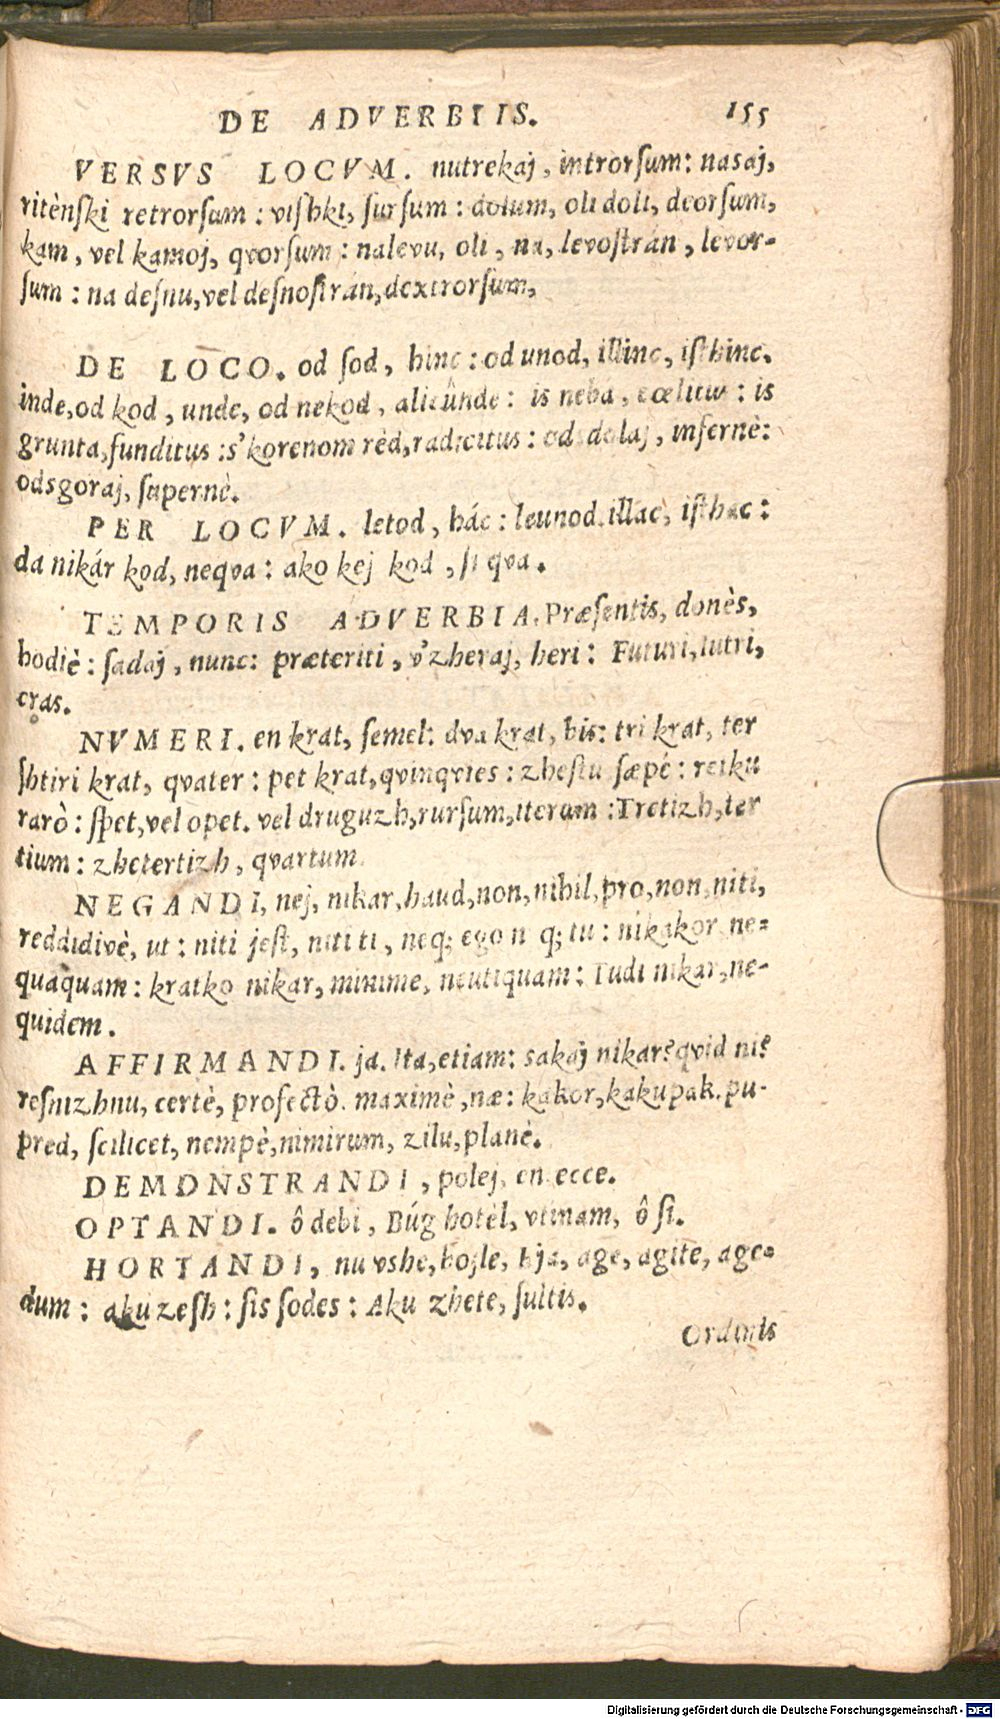 DE ADVERBIIS. 155
VERSVS LOCVM. nutrekaj, introrſum: nasaj,
ritènſki retrorſum: viſhki, ſurſum: dolum, oli doli, deorſum,
kam, vel kamoj, qvorſum: nalevu, oli, na, levoſtrán, levor-
ſum: na deſnu, vel deſnoſtrán, dextrorſum,
DE LOCO. od ſod, hinc: od unod, illinc, iſthinc.
inde, od kod, unde, od nekod, alicûnde: is neba, cœlitus: is
grunta, funditus: s'korenom rèd, radicitus: od sdolaj, infernè:
odsgoraj, ſupernè.
PER LOCVM. letod, hác: leunod. illac, iſthac:
da nikár kod, neqva: ako kej kod, ſi qva.
TEMPORIS ADVERBIA. Præſentis, donès,
hodiè: ſadaj, nunc: præteriti, v'zheraj, heri: Futuri, iutri,
cras.
NVMERI. en krat, ſemel: dva krat, bis: tri krat, ter
ſhtiri krat, qvater: pet krat, qvinqvies: zheſtu ſæpè: reiku
rarò: ſpet, vel opet. vel druguzh, rurſum, iterum: Tretizh, ter
tium: zhetertizh, qvartum
NEGANDI, nej, nikar, haud, non, nihil, pro, non, niti,
reddidivè, ut: niti jeſt, niti ti, neq; ego n q; tu: nikakor ne-
quaquam: kratko nikar, minime, neutiquam: Tudi nikar, ne-
quidem.
AFFIRMANDI. ja. Ita, etiam: sakaj nikar? qvid ni?
reſnizhnu, certè, profectò. maximè, næ: kakor, kakupak. pu-
pred, ſcilicet, nempè, nimirum, zilu, planè.
DEMONSTRANDI, polej, en ecce.
OPTANDI. ô debi, Búg hotèl, vtinam, ô ſi.
HORTANDI, nu vshe, bojle, Eja, age, agite, age-
dum: aku zeſh: ſis ſodes: Aku zhete, ſultis.
Ordinis
Digitalisierung gefördert durch die Deutsche Forschungsgemeinschaft - DFG